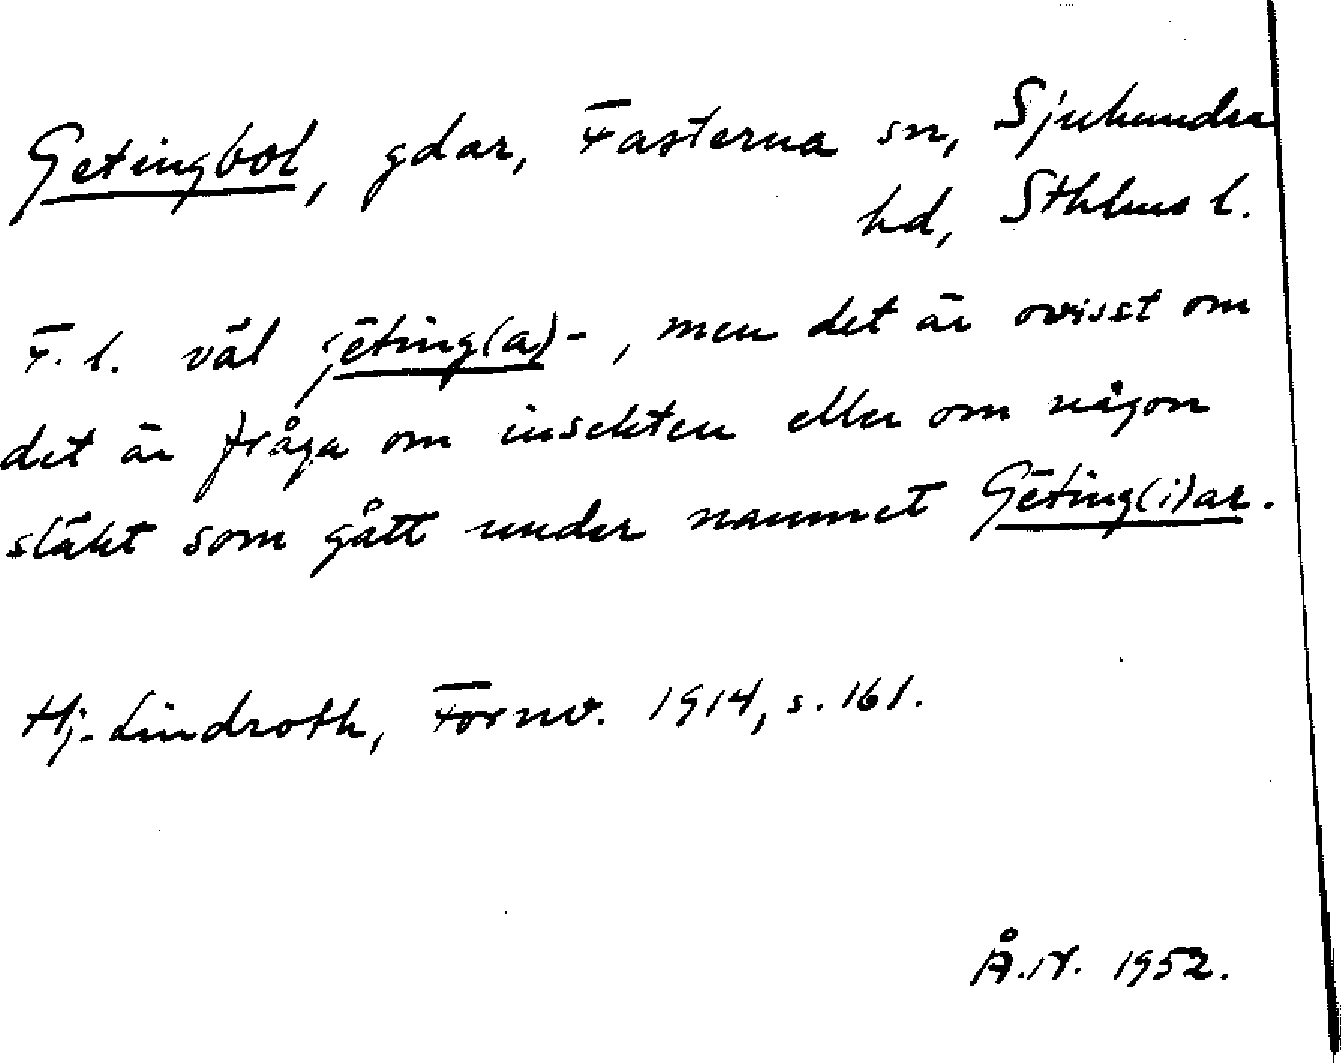 Getingbol, gdar, Fasterna sn, Sjuhundra
hd, Sthlms l.
F. l. väl gēting(a)-, men det är ovisst om
det är fråga om insekten eller om någon
släkt som gått under namnet Gēting(i)ar.
Hj. Lindroth, Fornv. 1914, s. 161.
Å.N. 1952.